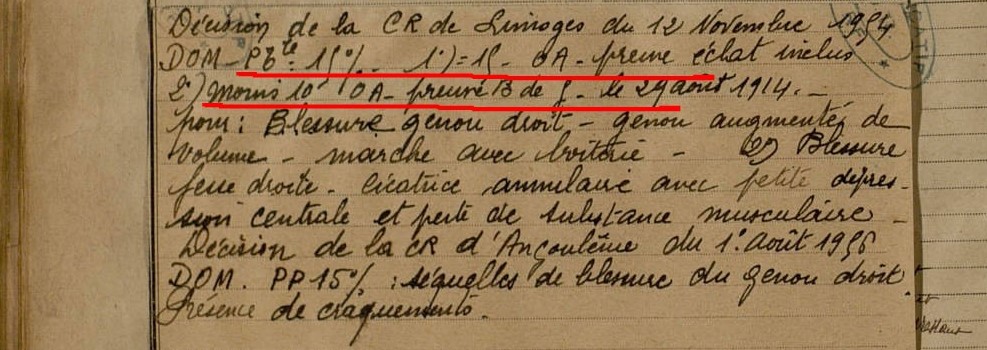 Décision de la CR de Limoges du 12 Novembre 1954
DOM - PP te = 15% - 1°) = 15 - OA - preuve éclat inclus
2°) Moins 10 OA - preuve B de f - le 29 août 1914. -
pour : Blessure genou droit - genou augmenté de
volume - marche avec boiterie - 2°) Blessure
fesse droite - cicatrice annulaire avec petite dépres-
sion centrale et perte de substance musculaire -
Décision de la CR d'Angoulême du 1° Août 1956
DOM. PP 15% : séquelles de blessure du genou droit
Présence de craquements.